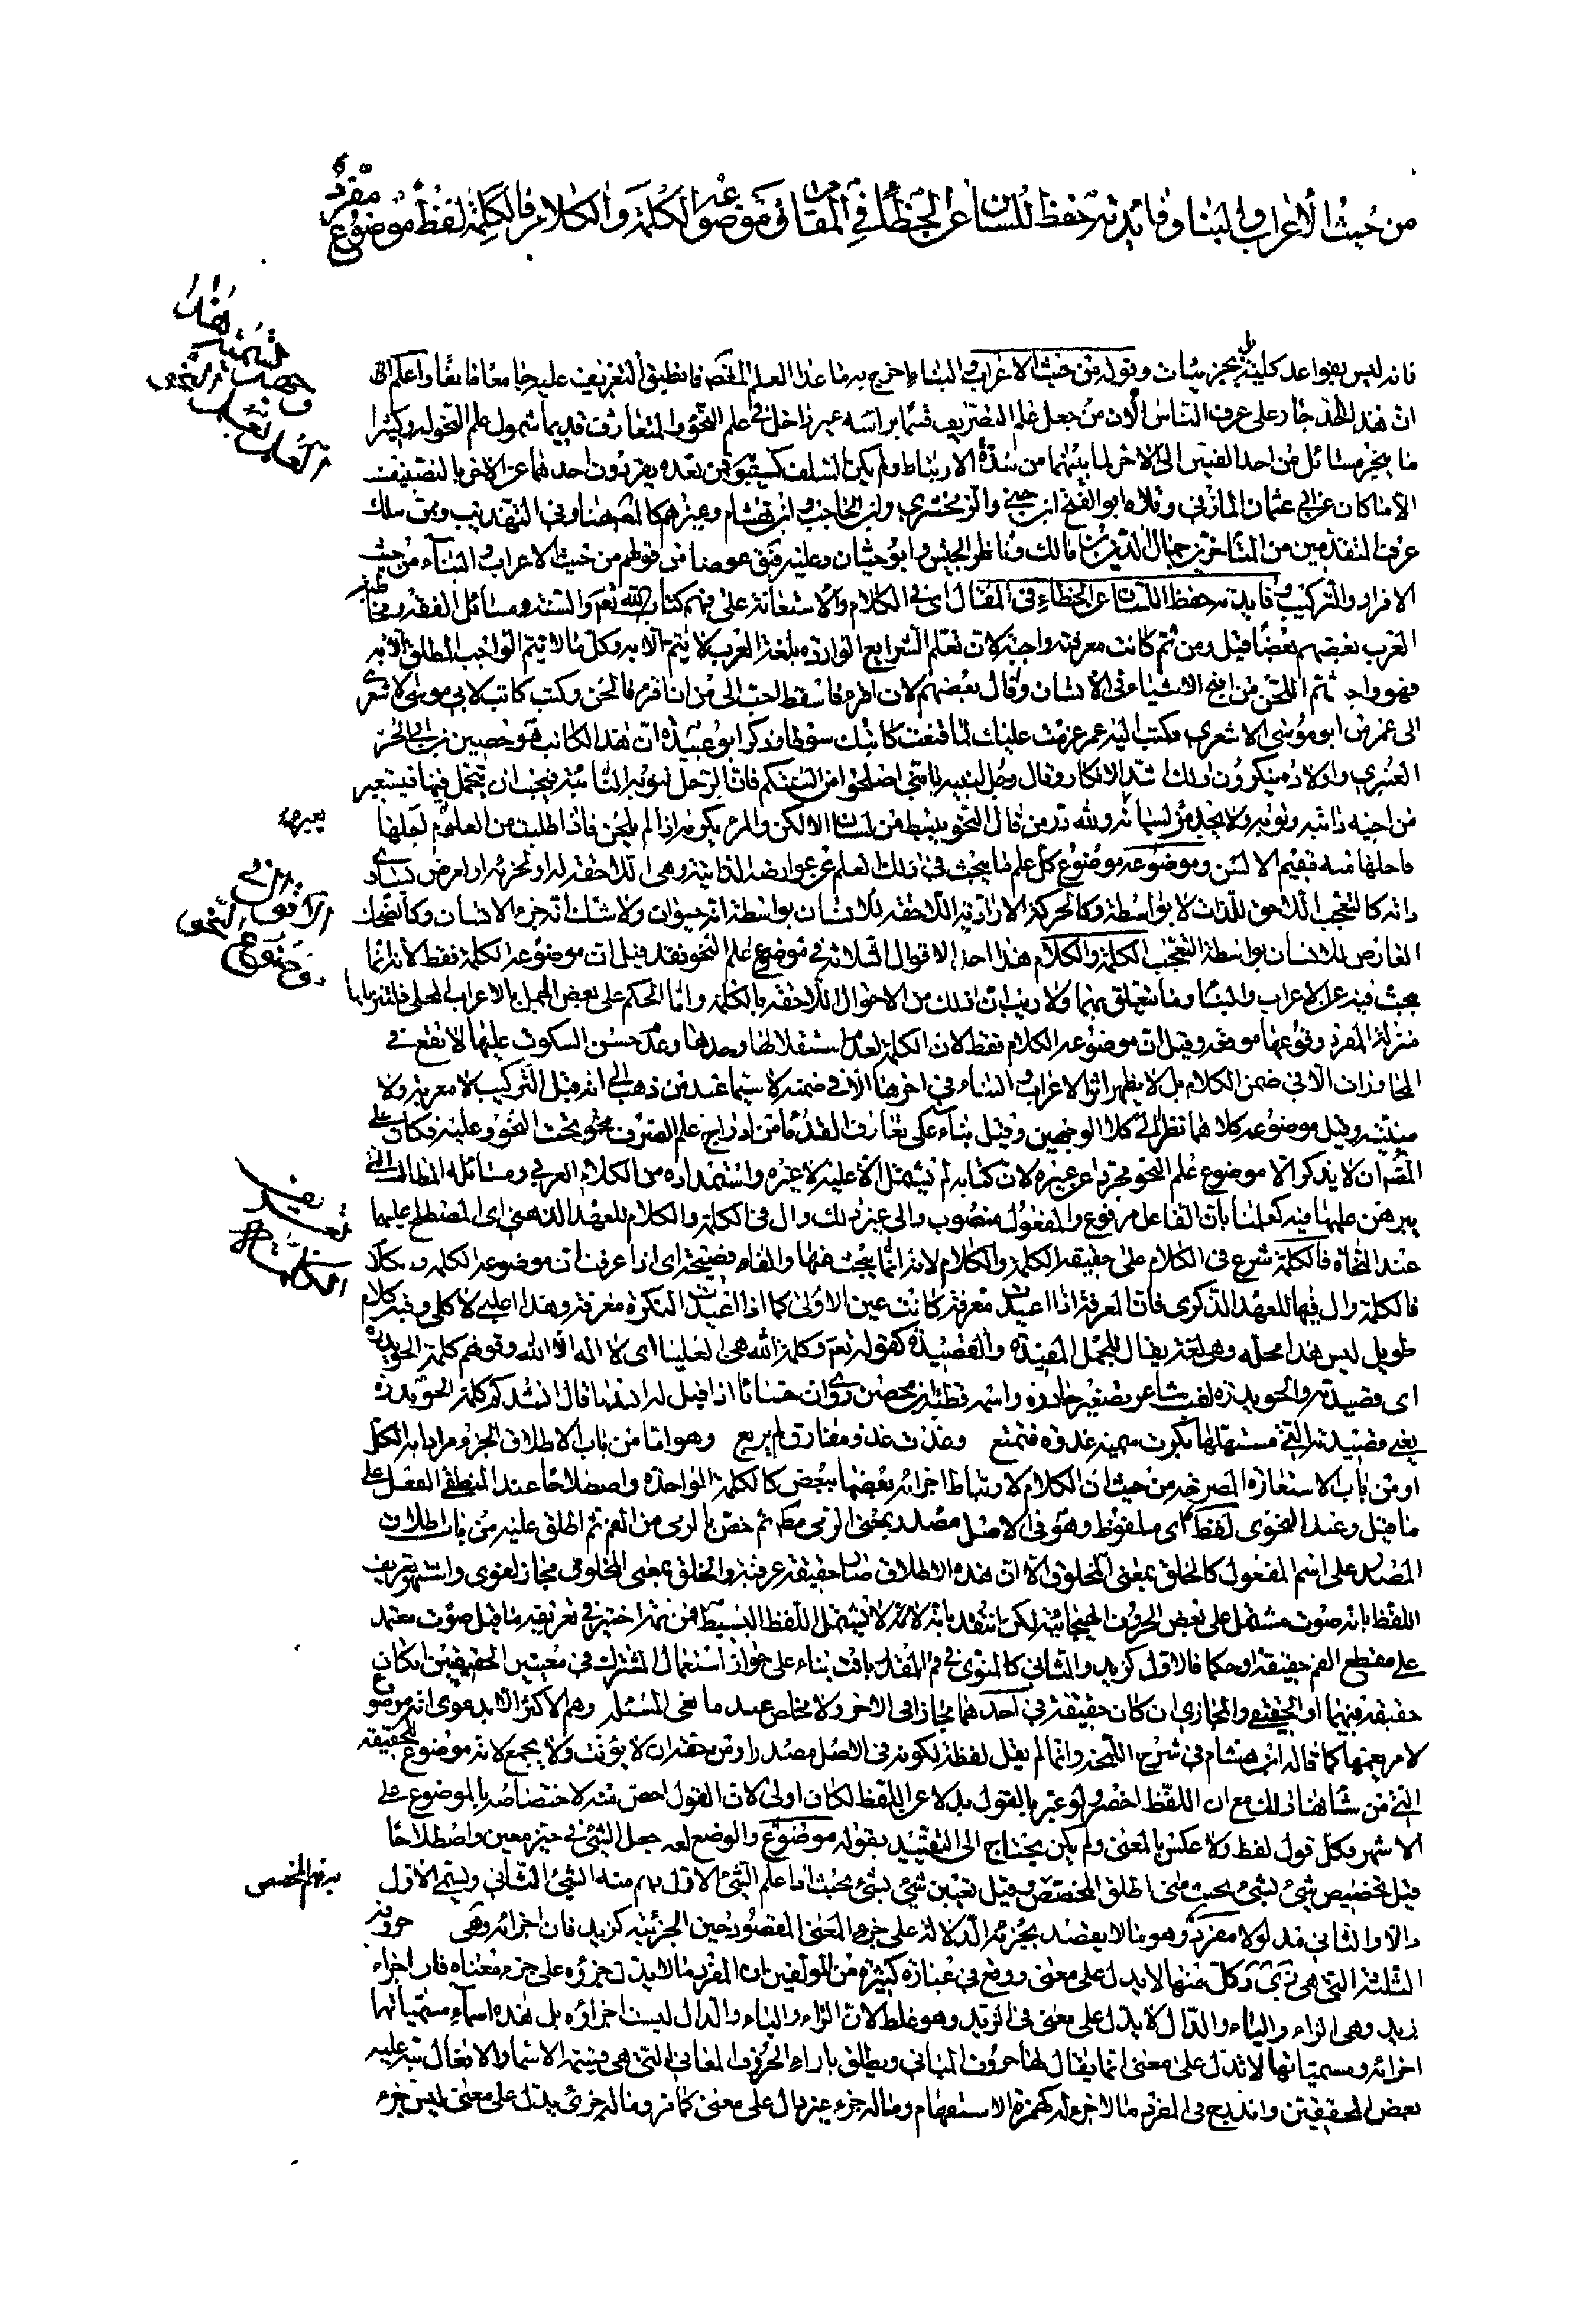 من حيث الاعراب والبنا وفايدته حفظ اللسان عن الخطأ في المقال وموضوعه الكلمة والكلام فالكلمة لفظ موضوع مفرد
فانه ليس بقواعد كلية بل بجزئيات وقوله من حيث الاعراب والبناء اخرج به ما عدا العلم المقصود فانطبق التعريف عليه جامعا مانعا واعلم
ان هذا الحد جار على عرف الناس الان من جعل علم التصريف قسما براسه غير داخل في علم النحو والمتعارف قديما شمول علم النحو له وكثيرا
ما ينجر مسائل من احد الفنين الى الاخر لما بينهما من شدة الارتباط ولم يكن السلف كسيبويه فمن بعده يفردون احدهما عن الاخر بالتصنيف
الا ما كان عن ابي عثمان المازني وتلاه ابو الفتح ابن جني والزمخشري وابن الحاجب وابن هشام وغيرهم كالمصـ هنا وفي التهذيب وممن سلك
عرف المتقدمين من المتاخرين جمال الدين بن مالك وناظر الجيش وابو حيان وعليه فيق عوضا من قولهم من حيث الاعراب والبناء من حيث
الافراد والتركيب وفايدته حفظ اللسان عن الخطاء في المقال اى في الكلام والاستعانة على فهم كتاب الله تعم والسنة ومسائل الفقه ومخاطبة
العرب بعضهم بعضا قيل ومن ثم كانت معرفته واجبة لان تعلم الشرايع الواردة بلغة العرب لا يتم الا به وكل ما لا يتم الواجب المطلق الا به
فهو واجب ثم اللحن من اقبح الاشياء في الانسان وقال بعضهم لان اقرء فاسقط احب الى من ان اقرء فالحن وكتب كاتب لابي موسى الاشعري
الى عمر من ابو موسى الاشعري فكتب اليه عمر عزمت عليك لما قنعت كاتبك سوطا وذكر ابو عبيدة ان هذا الكاتب هو حصين بن ابي الحر
العنبري واولاده ينكرون ذلك اشد الانكار وقال رجل لبنيه يا بني اصلحوا من السنتكم فان الرجل تنوبه النائبة فيجب ان يتجمل فيها فيستعير
من اخيه دابته وثوبه ولا يجد من لسانه ولله در من قال النحو يبسط من لسان الالكن والمرء يكرمه اذا لم يلحن فاذا طلبت من العلوم اجلها
فاجلها منه مقيم الالسن وموضوعه موضوع كل علم ما يبحث في ذلك العلم عن عوارضه الذاتية وهى اللاحقة له او لجزئه او لعرض يساوى
ذاته كالتعجب اللاحق للذات لا بواسطة وكالحركة الارادية اللاحقة للانسان بواسطة انه حيوان ولا شك انه جزء الانسان وكالضحك
العارض للانسان بواسطة التعجب الكلمة والكلام هذا احد الاقوال الثلاثة في موضوع علم النحو فقد قيل ان موضوعه الكلمة فقط لانه انما
يبحث فيه عن الاعراب والبنا وما يتعلق بهما ولا ريب ان ذلك من الاحوال اللاحقة بالكلمة واما الحكم على بعض الجمل بالاعراب المحلى فلتنزيلها
منزلة المفرد وقوعها موقعه وقيل ان موضوعه الكلام فقط لان الكلمة لعدم استقلالها وحدها وعدم حسن السكوت عليها لا تقع في
المحاورات الا في ضمن الكلام بل لا يظهر اثر الاعراب والبناء في اخرها الا في ضمنه لا سيما عند من ذهب الى انه قبل التركيب لا معربة ولا
مبنية وقيل موضوعه كلاهما نظرا الى كلا الوجهين وقيل بناء على تعارف القدماء من ادراج علم الصرف تحت النحو وعليه فكان على
المصـ ان لا يذكر الا موضوع علم النحو مجردا عن غيره لان كتابه لم يشتمل الا عليه لا غيره واستمداده من الكلام العربي ومسائله المطالب التي
يبرهن عليها فيه كعلمنا بان الفاعل مرفوع والمفعول منصوب والى غير ذلك وال في الكلمة والكلام للعهد الذهني اى المصطلح عليهما
عند النحاة فالكلمة شرع في الكلام على حقيقة الكلمة والكلام لانه انما يبحث عنها والفاء فصيحة اى اذا عرفت ان موضوعه الكلمة والكلام
فالكلمة وال فيها للعهد الذكرى فان المعرفة اذا اعيدت معرفة كانت عين الاولى كما اذا اعيدت النكرة معرفة وهذا اغلبي لا كلى وفيه كلام
طويل ليس هذا محله وهى لغة يقال للجمل المفيدة والقصيدة كقوله تعم وكلمة الله هى العليا اى لا اله الا الله وقولهم كلمة الحويدرة
اى قصيدته والحويدرة لقب شاعر تصغير حادرة واسمه قطبة بن محصن روى ان حسانا اذا قيل له انشدنا قال انشدكم كلمة الحويدرة
يعني قصيدته التي مستهلها بكرت سمية غدوة فتمتع وغدت غدو مفارق لم يربع وهو اما من باب الاطلاق الجزء مرادا به الكل
او من باب الاستعارة المصرحة من حيث ان الكلام لارتباط اجزائه بعضها ببعض كالكلمة الواحدة واصطلاحا عند المنطقي الفعل على
ما قيل وعند النحوى لفظ اى ملفوظ وهو في الاصل مصدر بمعنى الرمى مطلقا ثم خص بالرمى من الفم ثم اطلق عليه من باب اطلاق
المصدر على اسم المفعول كالخلق بمعنى المخلوق الا ان هذه الاطلاق صار حقيقة عرفية والخلق بمعنى المخلوق مجاز لغوى واشتهر تعريف
اللفظ بانه صوت مشتمل على بعض الحروف الهجائية لكن انتقد بانه لا يشتمل اللفظ البسيط فمن ثم اختير في تعريفه ما قيل صوت معتمد
على مقطع الفم حقيقة او حكما فالاول كزيد والثاني كالمنوى في قم المقدر بانت بناء على جواز استعمال المشترك في معنييه الحقيقيين كان
حقيقة فيهما او الحقيقي والمجازى ان كان حقيقة في احدهما مجازا في الاخر ولا مخلص عند مانعي المسئلة وهم الاكثر الا بدعوى انه موضوع
لامر يعمها كما قاله ابن هشام في شرح اللمحة وانما لم يقل لفظة لكونه في الاصل مصدرا ومن حقه ان لا يؤنث ولا يجمع لانه موضوع للحقيقة
التي من شانها ذلك مع ان اللفظ اخصر ولو عبر بالقول بدلا عن اللفظ لكان اولى لان القول اخص منه لاختصاصه بالموضوع على
الاشهر وكل قول لفظ ولا عكس بالمعنى ولم يكن يحتاج الى التقييد بقوله موضوع والوضع لغة جعل الشئ في حيز معين واصطلاحا
قيل تخصيص شئ بشئ بحيث متى اطلق المخصص وقيل تعيين شئ بشئ بحيث اذا علم الشئ الاول فهم منه الشئ الثاني ويسمى الاول
دالا والثاني مدلولا مفرد وهو ما لا يقصد بجزئه الدلالة على جزء المعنى المقصود حين الجزئية كزيد فان اجزائه وهى حروفه
الثلثة التي هى زى د كل منها لا يدل على معنى ووقع في عبارة كثيرة من المؤلفين ان المفرد ما لا يدل جزؤه على جزء معناه فان اجزاء
زيد وهى الزاء والياء والدال لا يدل على معنى في الزيد وهو غلط لان الزاء والياء والدال ليست اجزاؤه بل هذه اسماء مسمياتها
اجزائه ومسمياتها لا تدل على معنى انما يقال لها حروف المباني ويطلق بازاء الحروف المعاني التي هى قسيمة الاسما والافعال نبه عليه
بعض المحققين واندرج في المفرد ما لا جزء له كهمزة الاستفهام وما له جزء غير دال على معنى كما مر وما له جزئ يدل على معنى ليس جزء
فايدة النحو
الاقوال في موضوع النحو
تعريف الكلمة